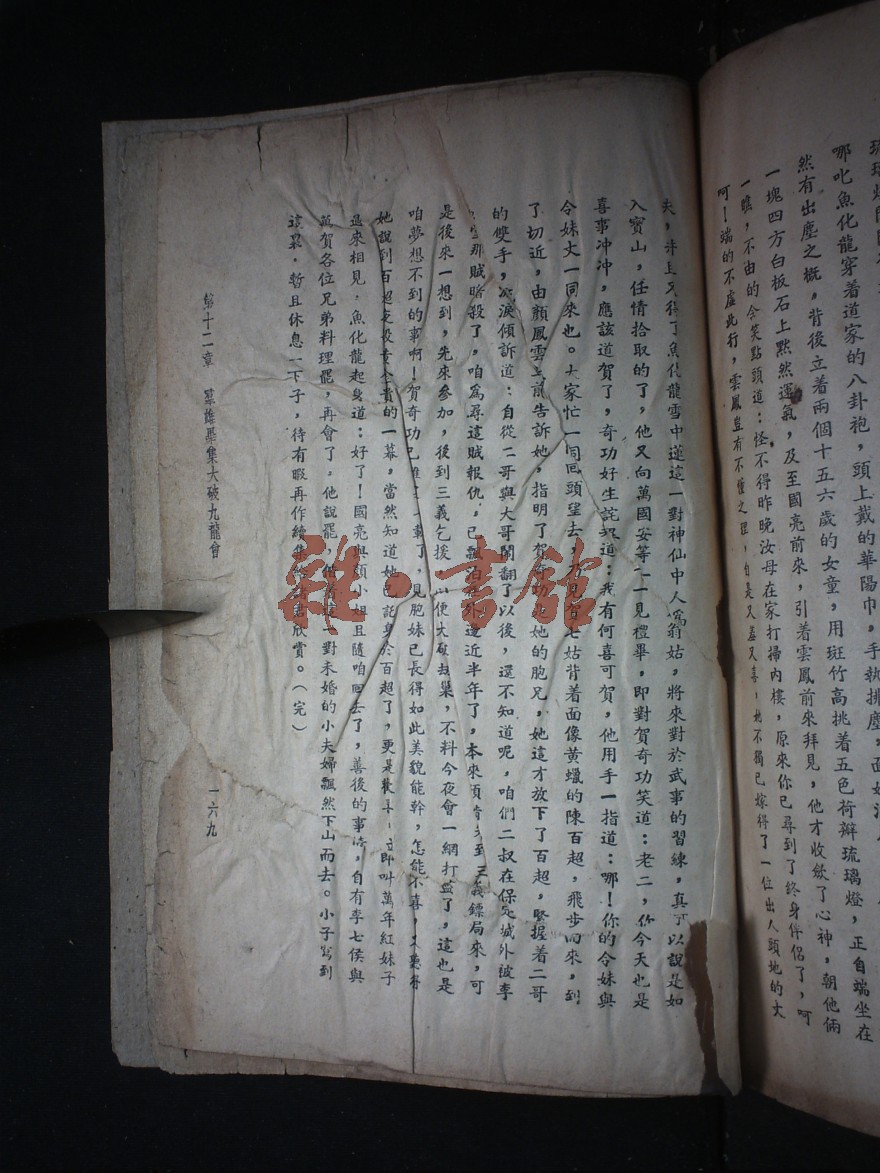 琉璃燈
哪叱魚化龍穿着道家的八卦袍，頭上戴的華陽巾，手執拂塵，面如
然有出塵之概，背後立着兩個十五六歲的女童，用斑竹高挑着五色荷瓣琉璃燈，正自端坐在
一塊四方白板石上默然運氣，及至國亮前來，引着雲鳳前來拜見，他才收斂了心神，朝他倆
一瞧，不由的含笑點頭道：怪不得昨晚汝母在家打掃內樓，原來你已尋到了終身伴侶了，呵
呵！端的不虛此行，雲鳳豈有不懂之理，自是又羞又喜，她不獨已嫁得了一位出人頭地的丈
夫，并且又得了魚化龍雪中蓮這一對神仙中人為翁姑，將來對於武事的習練，真可以說是如
入寶山，任情拾取的了，他又向萬國安等一一見禮畢，即對賀奇功笑道：老二，你今天也是
喜事冲冲，應該道賀了，奇功好生詫異道：我有何喜可賀，他用手一指道：哪！你的令妹與
令妹丈一同來也。大家忙一同回頭望去，乃見賀七姑背着面像黄蠟的陳百超，飛步而來，到
了切近，由顏鳳雲上前告訴她，指明了賀奇功她的胞兄，她這才放下了百超，緊握着二哥
的雙手，流淚傾訴道：自從二哥與大哥鬧翻了以後，還不知道呢，咱們二叔在保定城外被李
那賊暗殺了，咱爲尋這賊報仇，已飄泊在外邊近半年了，本來預備至三義鏢局來，可
是後來一想到，先來參加，後到三義乞援，以便大破九巢，不料今夜會一網打盡了，這也是
咱夢想不到的事啊！賀奇功已，見胞妹已長得如此美貌能幹，怎能不喜，又聽得
她說到百超的一幕，當然知道她已託身於百超了，更是歡喜，立即叫萬年紅妹子
過來相見，魚化龍起身道：好了！國亮與顏小姐且隨咱回去了，善後的事情，自有李七侯與
萬賀各位兄弟料理罷，再會了。他說罷，偕着這一對未婚的小夫婦飄然下山而去。小子寫到
這裏，暫且休息一下子，待有暇再作續集欣賞。（完）
第十二章 羣雄畢集大破九龍會
一六九
雜·書館